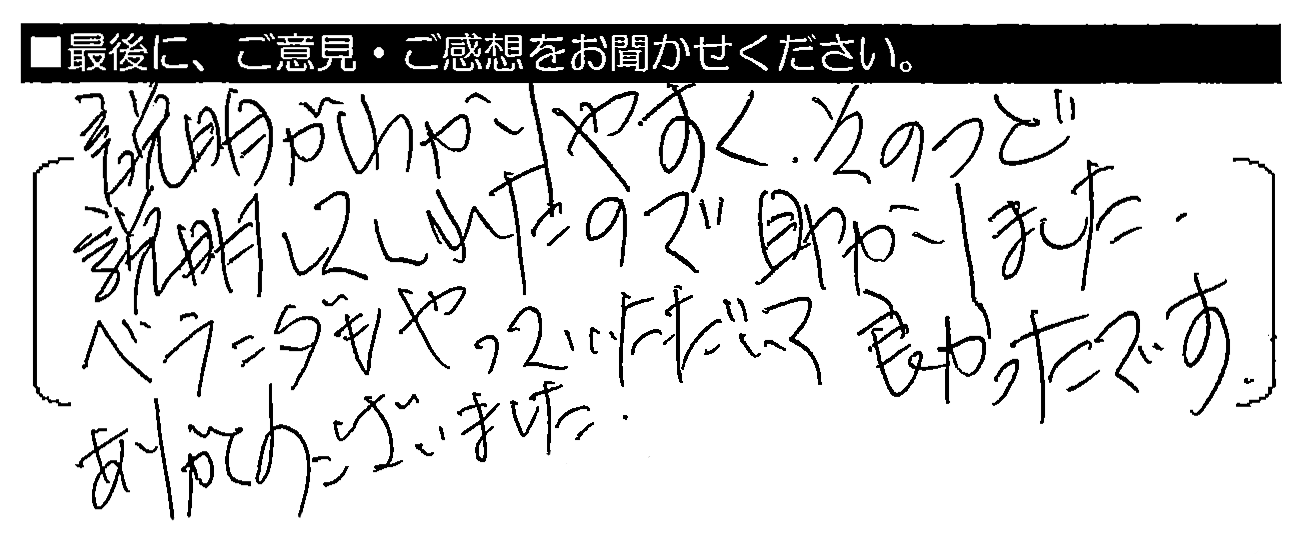 ■最後に、ご意見・ご感想をお聞かせください。
説明がわかりやすく、そのつど
説明してくれたので助かりました。
ベランダもやっていただいて良かったです。
ありがとうございました。